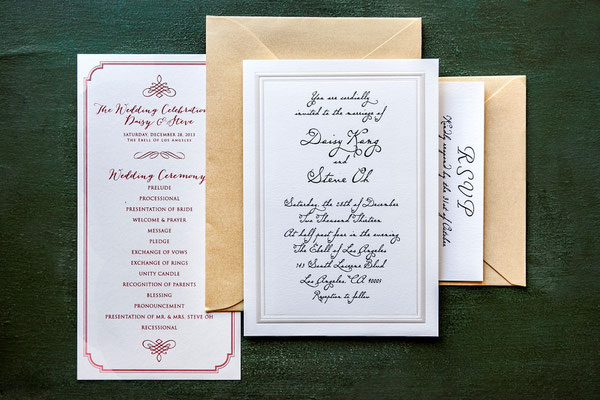 The Wedding Celebration
Daisy & Steve
SATURDAY, DECEMBER 28, 2013
THE EBELL OF LOS ANGELES
Wedding Ceremony
PRELUDE
PROCESSIONAL
PRESENTATION OF BRIDE
WELCOME & PRAYER
MESSAGE
PLEDGE
EXCHANGE OF VOWS
EXCHANGE OF RINGS
UNITY CANDLE
RECOGNITION OF PARENTS
BLESSING
PRONOUNCEMENT
PRESENTATION OF MR. & MRS. STEVE OH
RECESSIONAL
You are cordially
invited to the marriage of
Daisy Kang
and
Steve Oh
Saturday, the 28th of December
Two Thousand Thirteen
At half past four in the evening
The Ebell of Los Angeles
743 South Lucerne Blvd
Los Angeles, CA 90005
Reception to follow
RSVP
Kindly respond by the 31st of October